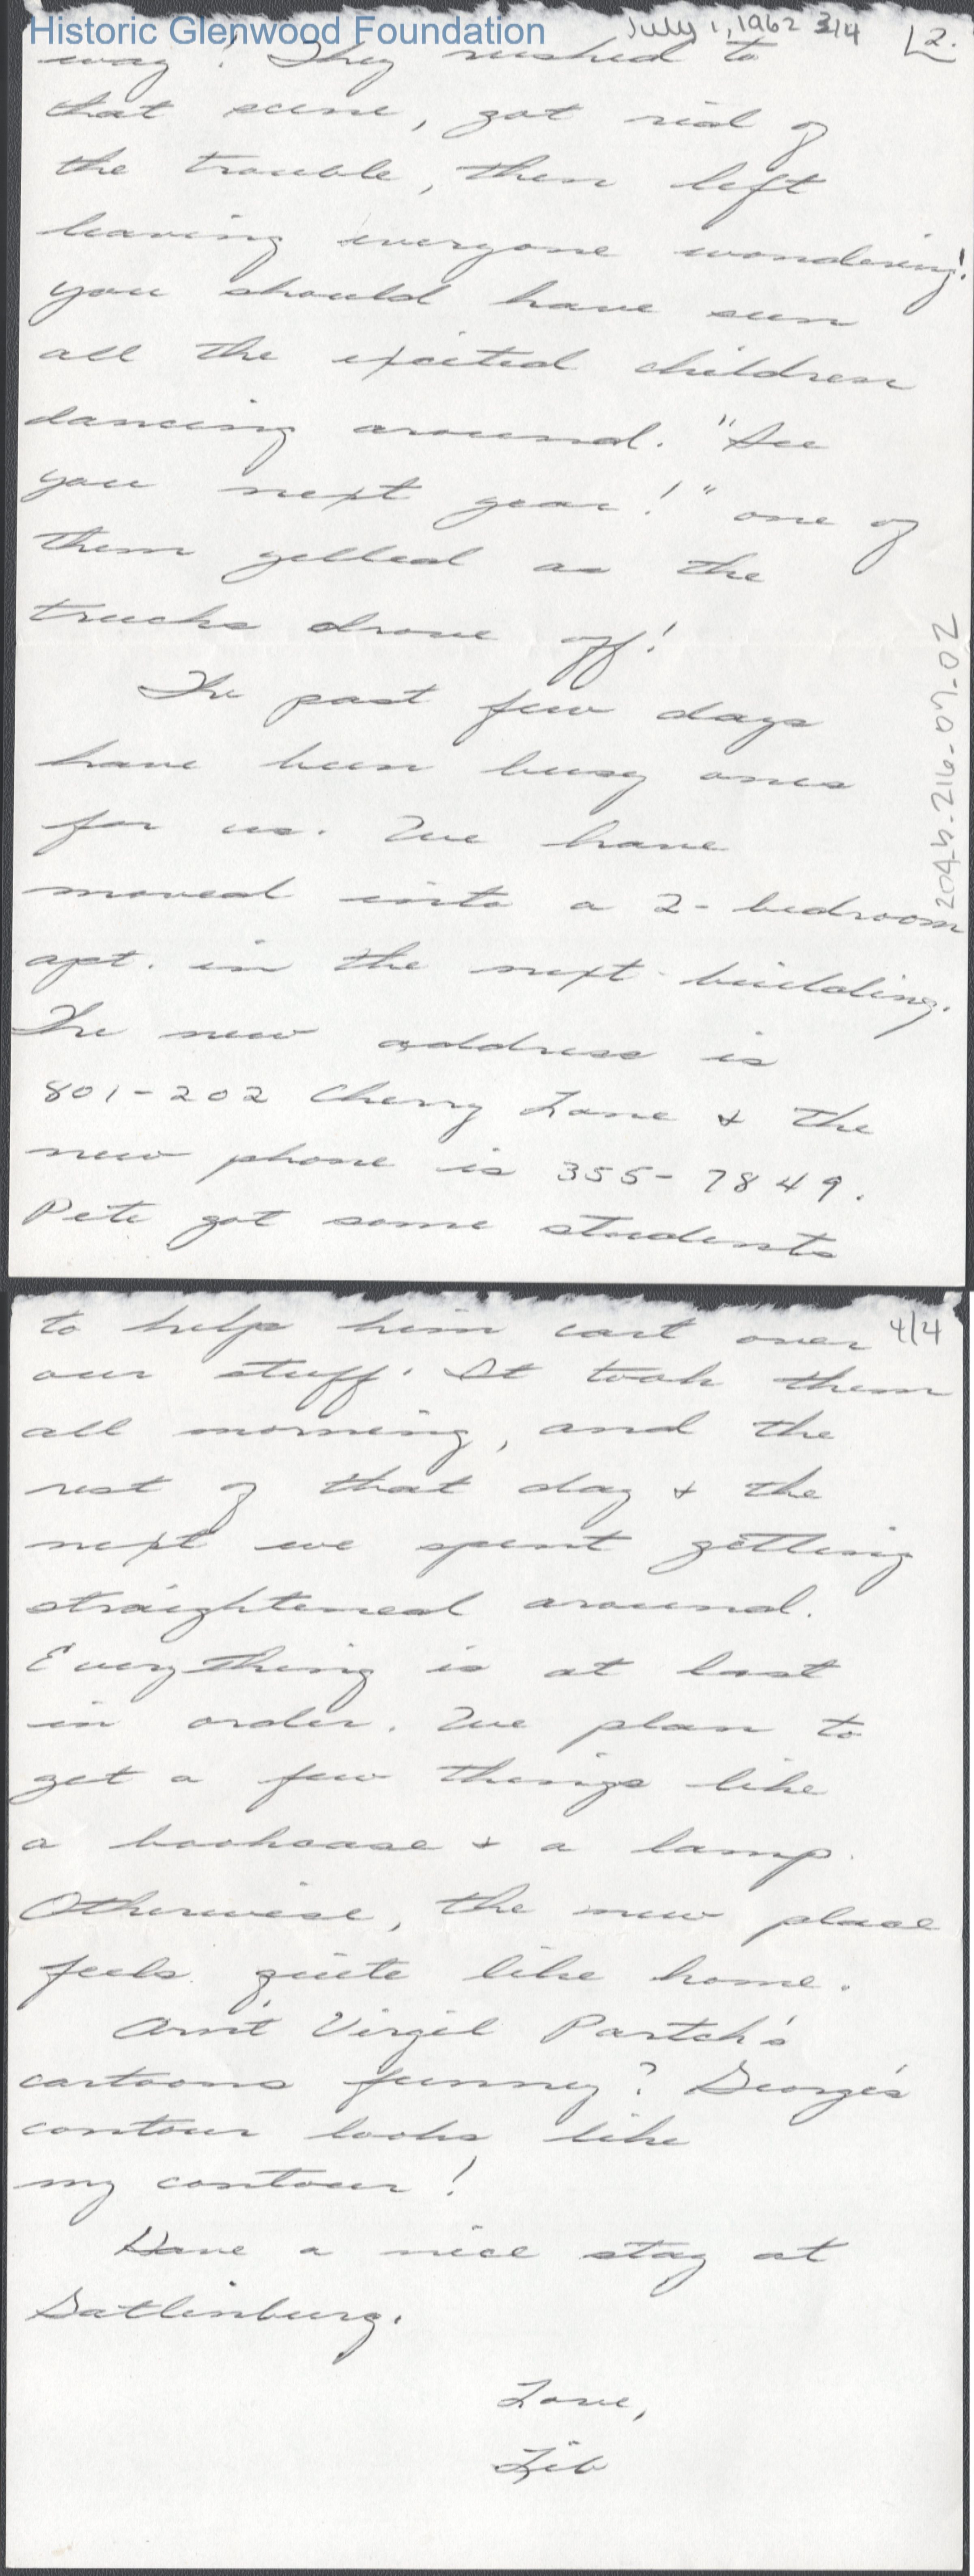 Historic Glenwood Foundation
July 1, 1962 3/4
2.
way! They rushed to
that scene, got rid of
the trouble, then left
leaving everyone wondering!
You should have seen
all the excited children
dancing around. "See
you next year!" one of
them yelled as the
trucks drove off!
The past few days
have been busy ones
for us. We have
moved into a 2-bedroom
apt. in the next building.
The new address is
801-202 Cherry Lane & the
new phone is 355-7849.
Pete got some students
204-5-216-07-02
4/4
to help him cart over
our stuff. It took them
all morning, and the
rest of that day & the
next we spent getting
straightened around.
Everything is at last
in order. We plan to
get a few things like
a bookcase & a lamp.
Otherwise, the new place
feels quite like home.
Arn't Virgil Partch's
cartoons funny? George's
contour looks like
my contour!
Have a nice stay at
Gatlinburg.
Love,
Lib